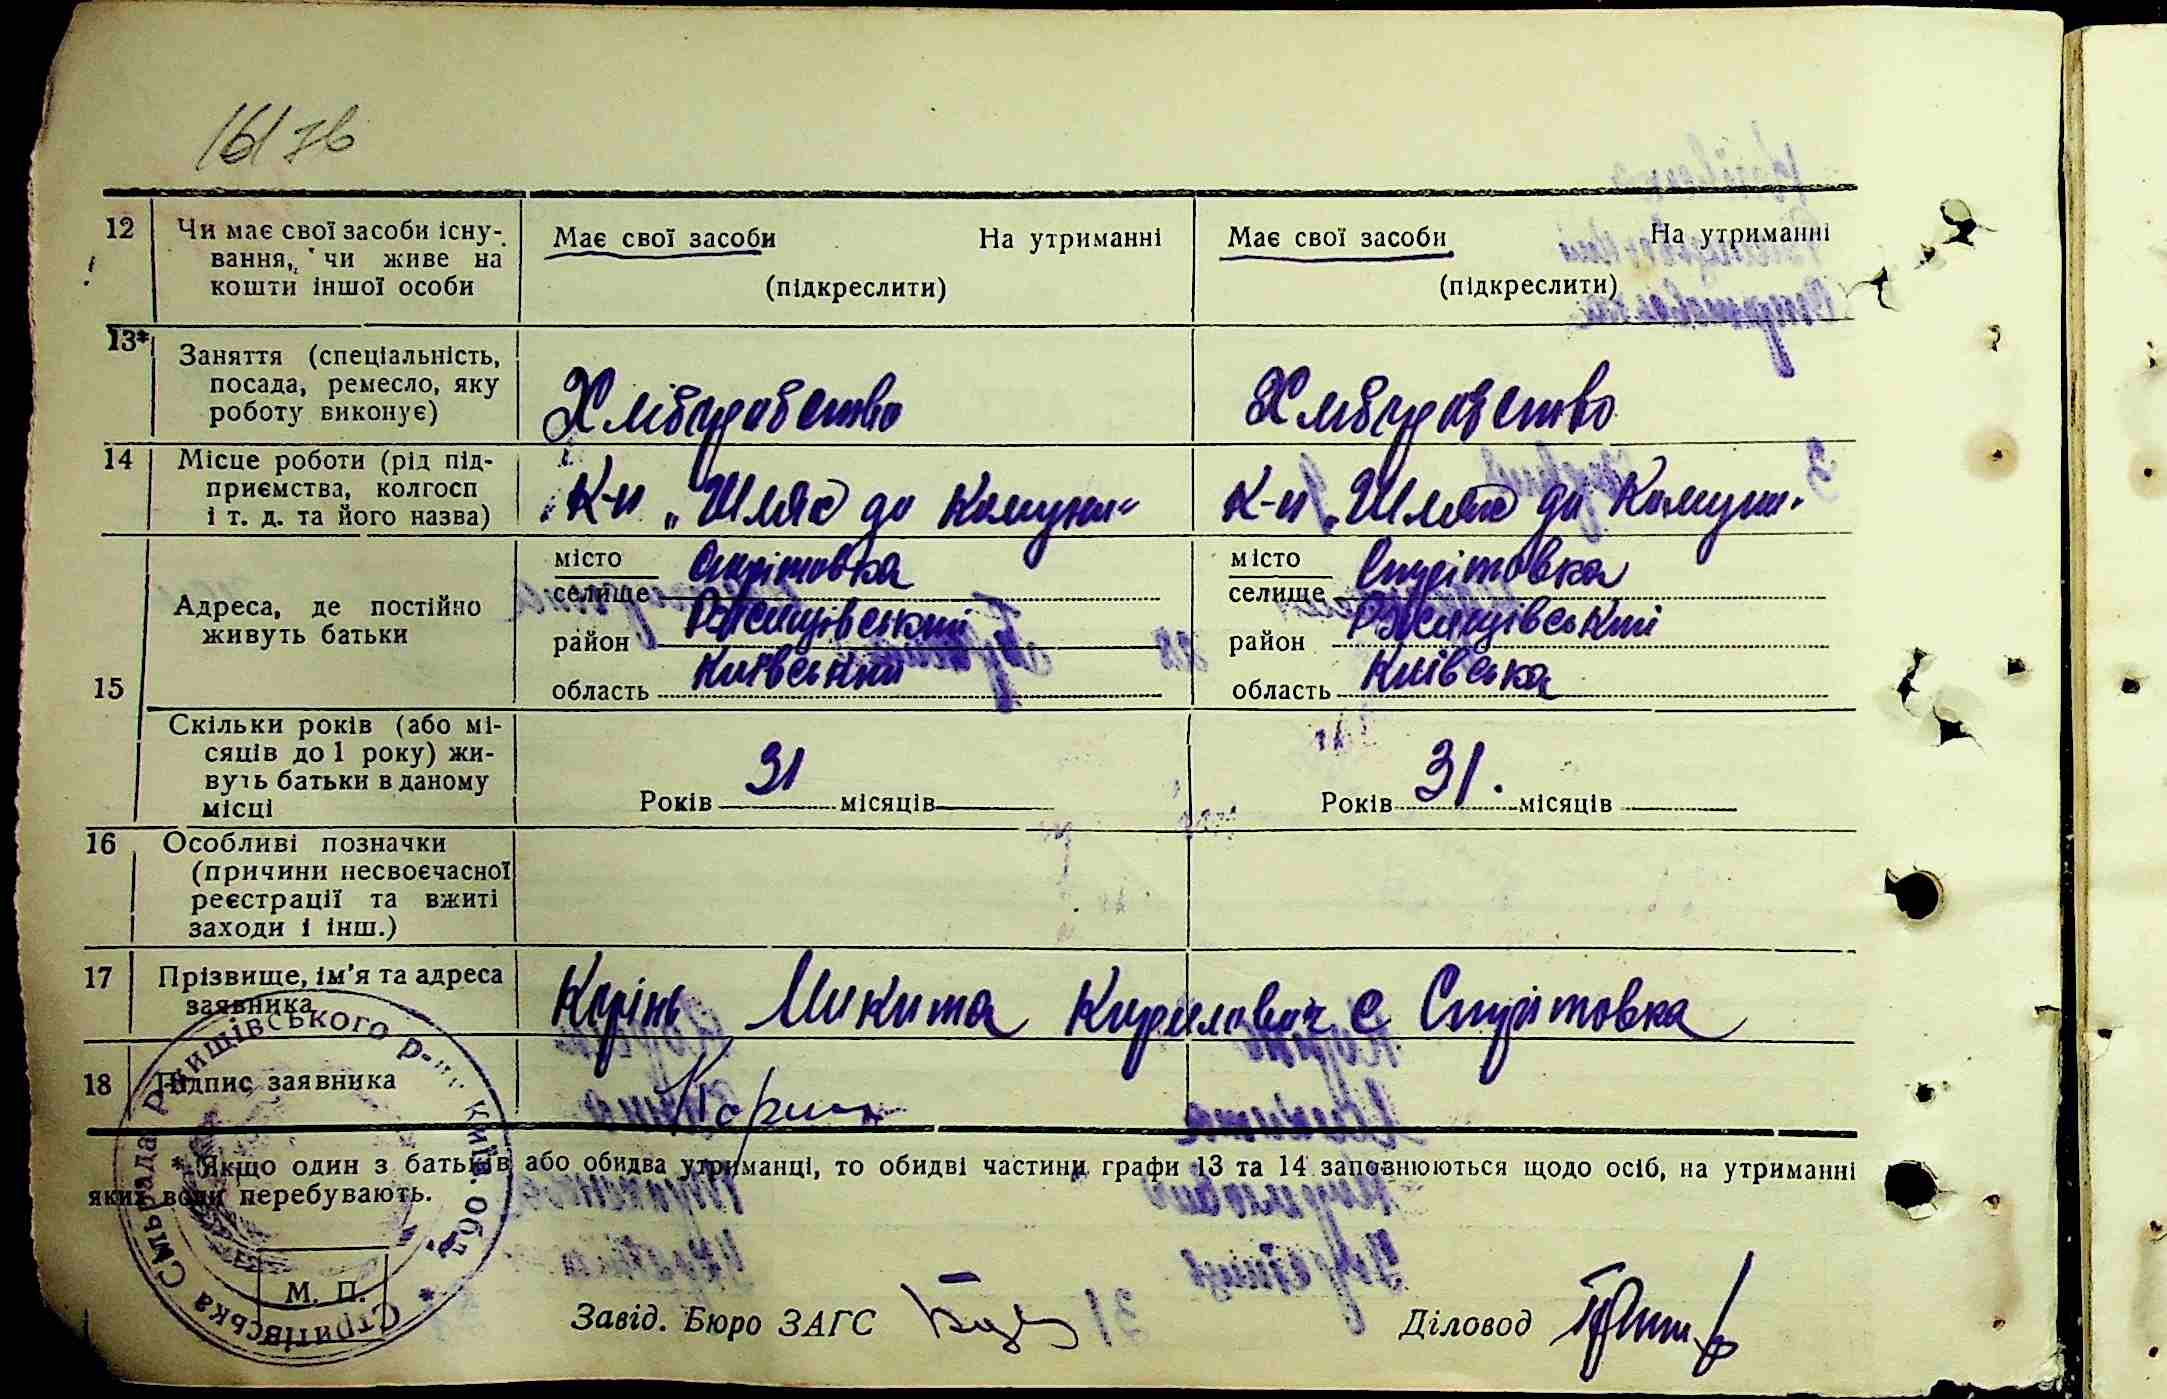 161 зв
12 Чи має свої засоби існу-
вання, чи живе на
кошти іншої особи
Має свої засоби На утриманні
(підкреслити)
Має свої засоби На утриманні
(підкреслити)
13* Заняття (спеціальність,
посада, ремесло, яку
роботу виконує)
Хліборобство
Хліборобство
14 Місце роботи (рід під-
приємства, колгосп
і т. д. та його назва)
К-п „Шлях до Комуни“
К-п „Шлях до Комуни“
15 Адреса, де постійно
живуть батьки
місто
селище Стрітовка
район Ржищівський
область Київський
місто
селище Стрітовка
район Ржищівський
область Київська
Скільки років (або мі-
сяців до 1 року) жи-
вуть батьки в даному
місці
Років 31 місяців
Років 31. місяців
16 Особливі позначки
(причини несвоєчасної
реєстрації та вжиті
заходи і інш.)
17 Прізвище, ім'я та адреса
заявника
Корінь Микита Кирилович с Стрітовка
18 Підпис заявника
* Якщо один з батьків або обидва утриманці, то обидві частини графи 13 та 14 заповнюються щодо осіб, на утриманні
яких вони перебувають.
Стритівська Сільрада Ржищівського р-ну Київ. обл.
М. П.
Завід. Бюро ЗАГС
Діловод